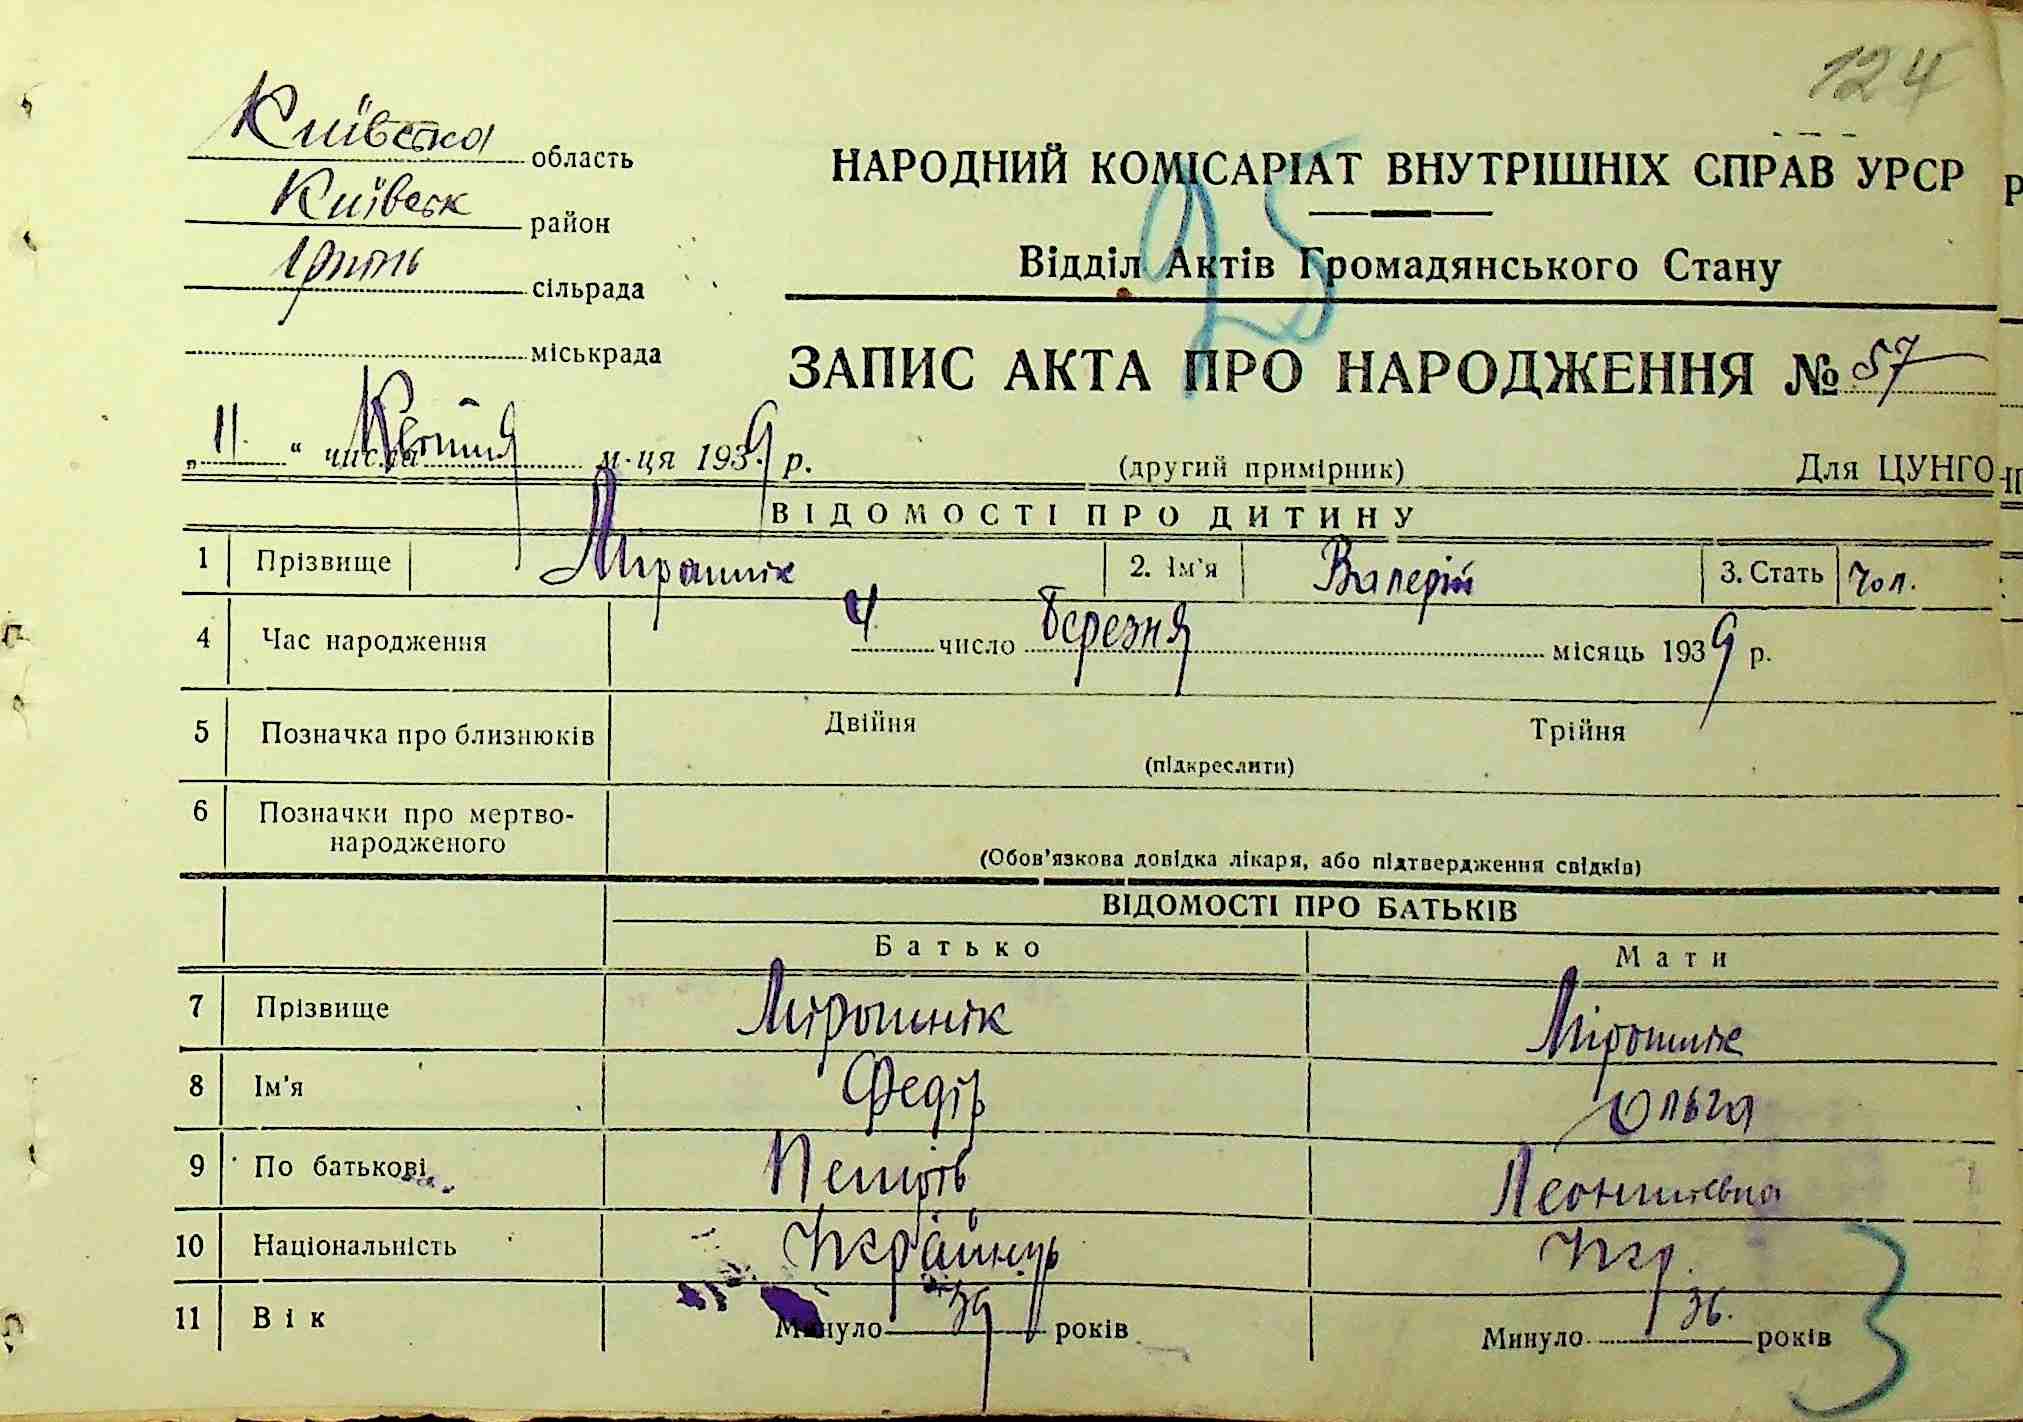 124
Київська область
НАРОДНИЙ КОМІСАРІАТ ВНУТРІШНІХ СПРАВ УРСР
Київськ район
Ірпінь сільрада
25
Відділ Актів Громадянського Стану
міськрада
ЗАПИС АКТА ПРО НАРОДЖЕННЯ № 57
„11“ числа Квітня м-ця 1939 р.
(другий примірник) Для ЦУНГО
ВІДОМОСТІ ПРО ДИТИНУ
1 Прізвище Мірошнік 2. Ім'я Валерій 3. Стать Чол.
4 Час народження 4 число Березня місяць 1939 р.
5 Позначка про близнюків Двійня Трійня
(підкреслити)
6 Позначки про мертво-
народженого
(Обов'язкова довідка лікаря, або підтвердження свідків)
ВІДОМОСТІ ПРО БАТЬКІВ
Батько Мати
7 Прізвище Мірошнік Мірошнік
8 Ім'я Федір Ольга
9 По батькові Петров
10 Національність Українець Укр.
11 Вік Минуло 39 років Минуло 36. років